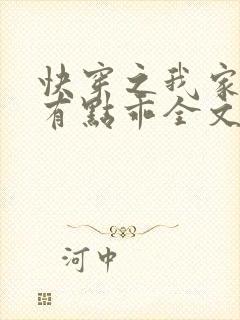 快穿之我家
有點乖全文
河中